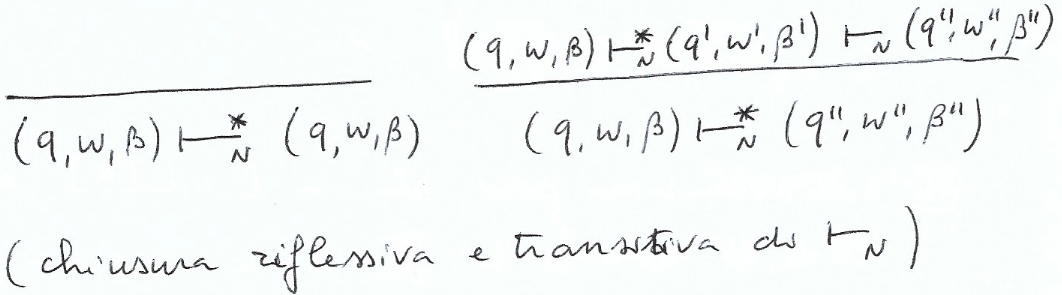 (q, w, β) ⊢*_N (q', w', β') ⊢_N (q'', w'', β'')
(q, w, β) ⊢*_N (q, w, β) (q, w, β) ⊢*_N (q'', w'', β'')
(chiusura riflessiva e transitiva di ⊢_N)